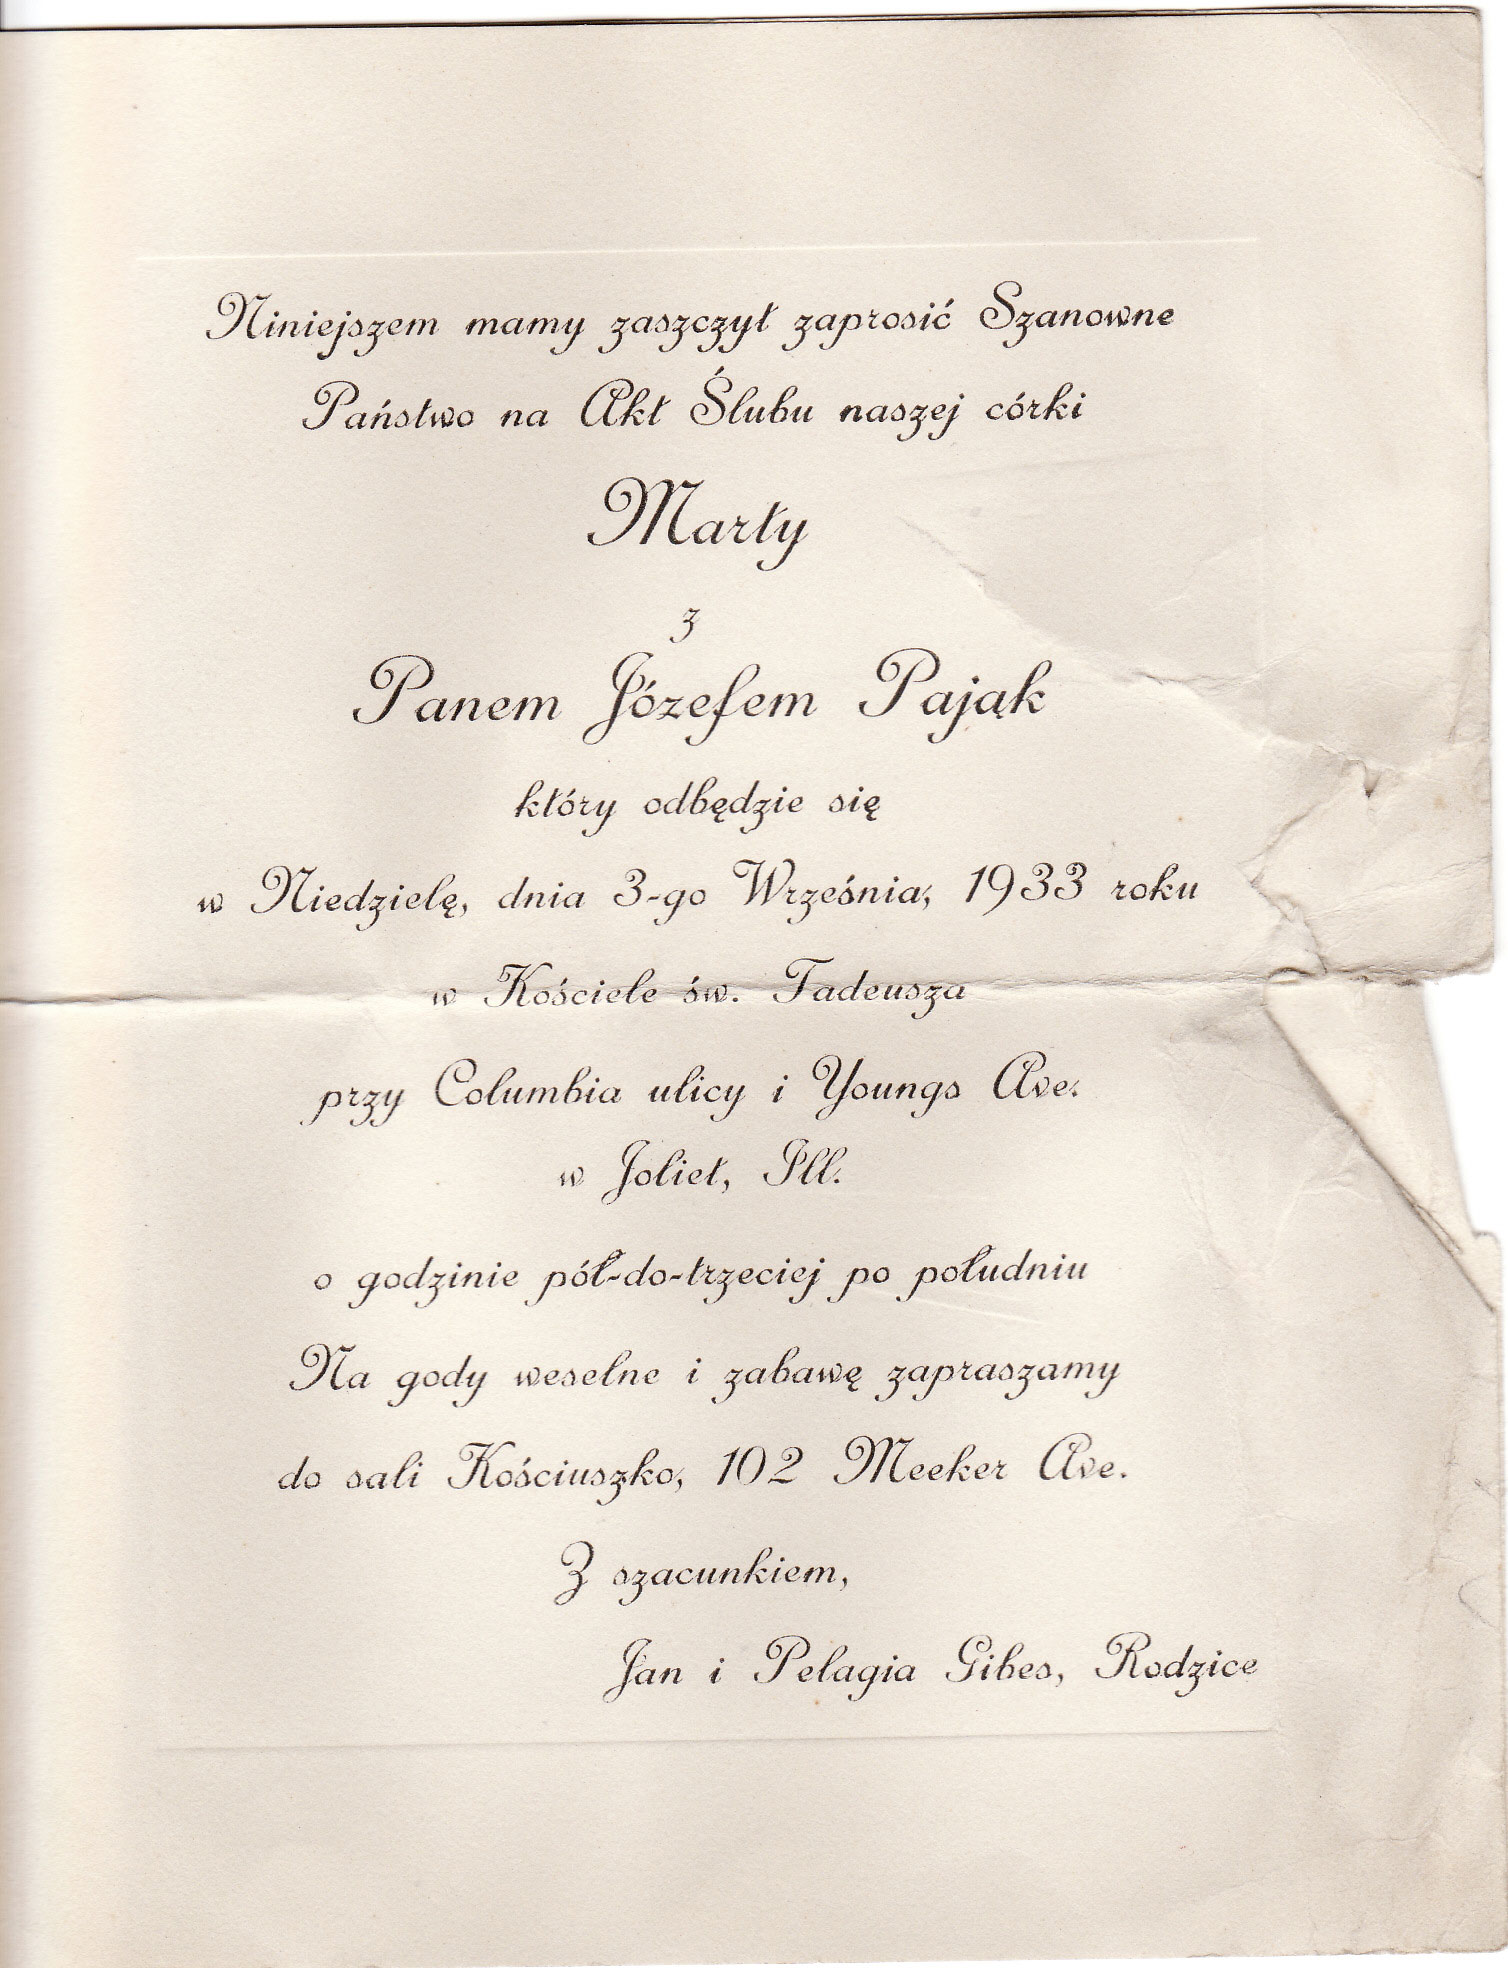 Niniejszem mamy zaszczyt zaprosić Szanowne
Państwo na Akt Ślubu naszej córki
Marty
z
Panem Józefem Pająk
który odbędzie się
w Niedzielę, dnia 3-go Września, 1933 roku
w Kościele św. Tadeusza
przy Columbia ulicy i Youngs Ave.
w Joliet, Ill.
o godzinie pół-do-trzeciej po południu
Na gody weselne i zabawę zapraszamy
do sali Kościuszko, 102 Meeker Ave.
Z szacunkiem,
Jan i Pelagia Gibes, Rodzice